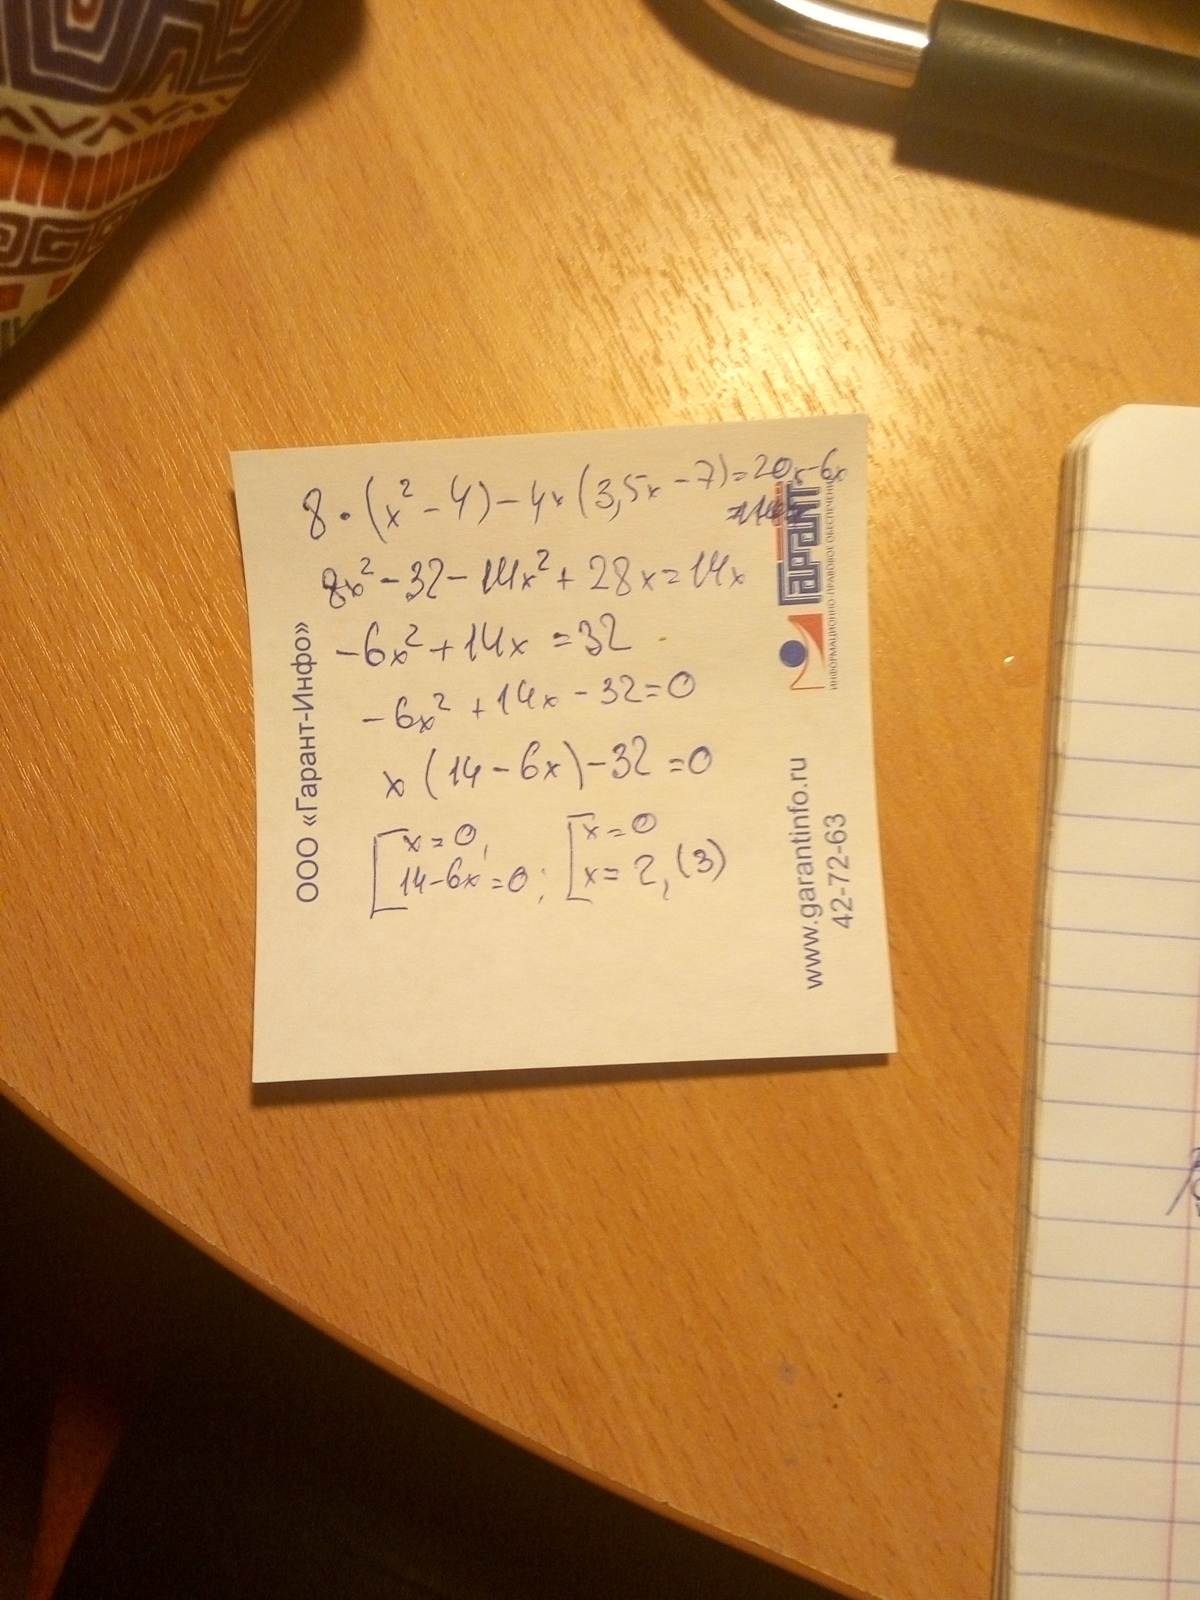 8·(x²-4)-4x(3,5x-7)=20x-6x
8x²-32-14x²+28x=14x
-6x²+14x=32
-6x²+14x-32=0
x(14-6x)-32=0
[x=0, [x=0
14-6x=0; x=2,(3)
ООО «Гарант-Инфо»
Гарант
ИНФОРМАЦИОННО-ПРАВОВОЕ ОБЕСПЕЧЕНИЕ
www.garantinfo.ru
42-72-63